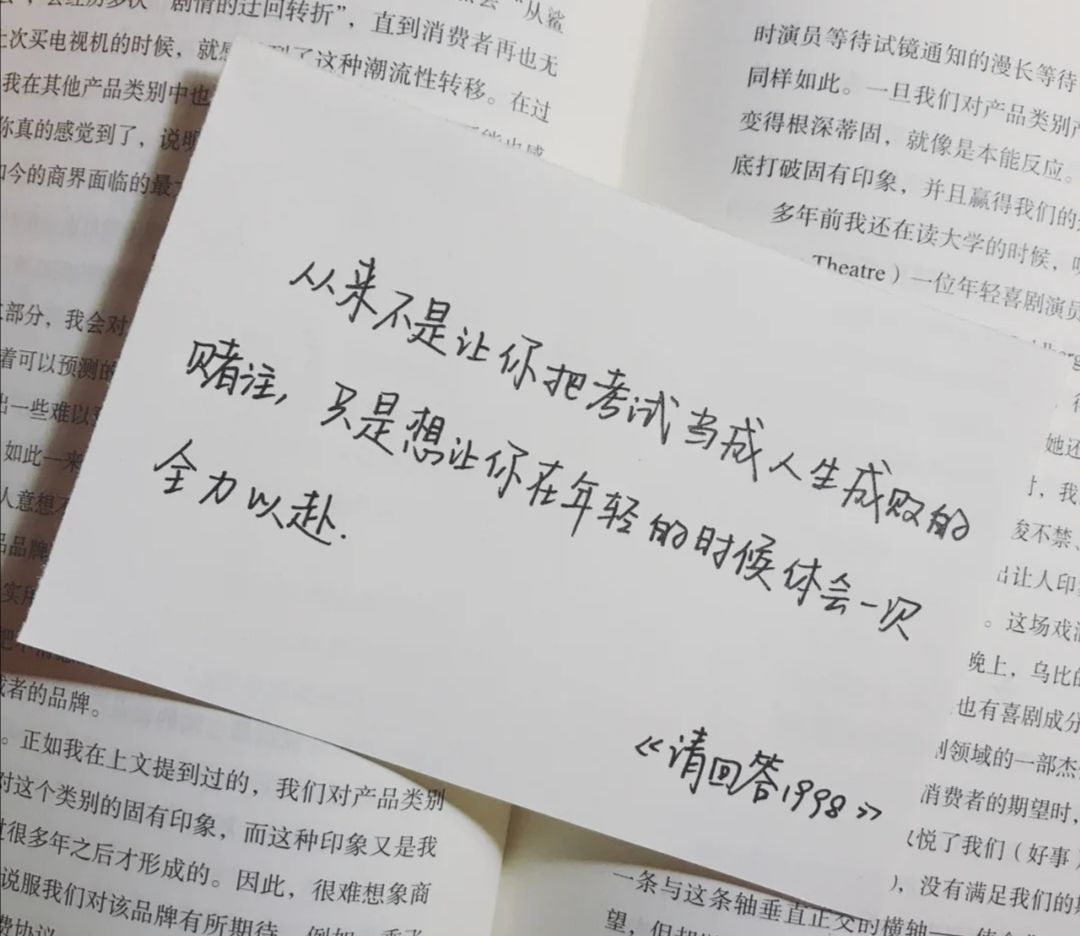 从来不是让你把考试当成人生成败的
赌注，只是想让你在年轻的时候体会一次
全力以赴.
《请回答1998》
“从鲨
剧情的迂回转折”，直到消费者再也无
上次买电视机的时候，就感
到了这种潮流性转移。在过
我在其他产品类别中也
你真的感觉到了，说明
如今的商界面临的最
部分，我会对
着可以预测的
出一些难以
如此一来
人意想
品品牌
或者的品牌。
。正如我在上文提到过的，我们对产品类别
对这个类别的固有印象，而这种印象又是我
过很多年之后才形成的。因此，很难想象商
说服我们对该品牌有所期待，例如
时演员等待试镜通知的漫长等待
同样如此。一旦我们对产品类别
变得根深蒂固，就像是本能反应。
底打破固有印象，并且赢得我们的
多年前我还在读大学的时候，
Theatre）一位年轻喜剧演员
她还
，我
俊不禁、
出让人印
。这场戏
晚上，乌比的
也有喜剧成分
领域的一部杰
消费者的期望时，
悦了我们（好事）
），没有满足我们的
一条与这条轴垂直正交的横轴——
望，但却